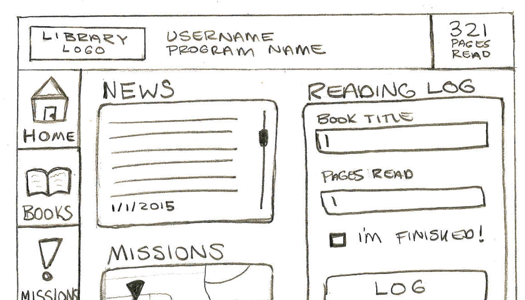 LIBRARY
LOGO
USERNAME
PROGRAM NAME
321
PAGES
READ
HOME
BOOKS
MISSIONS
NEWS
1/1/2015
MISSIONS
READING LOG
BOOK TITLE
PAGES READ
I'M FINISHED!
LOG